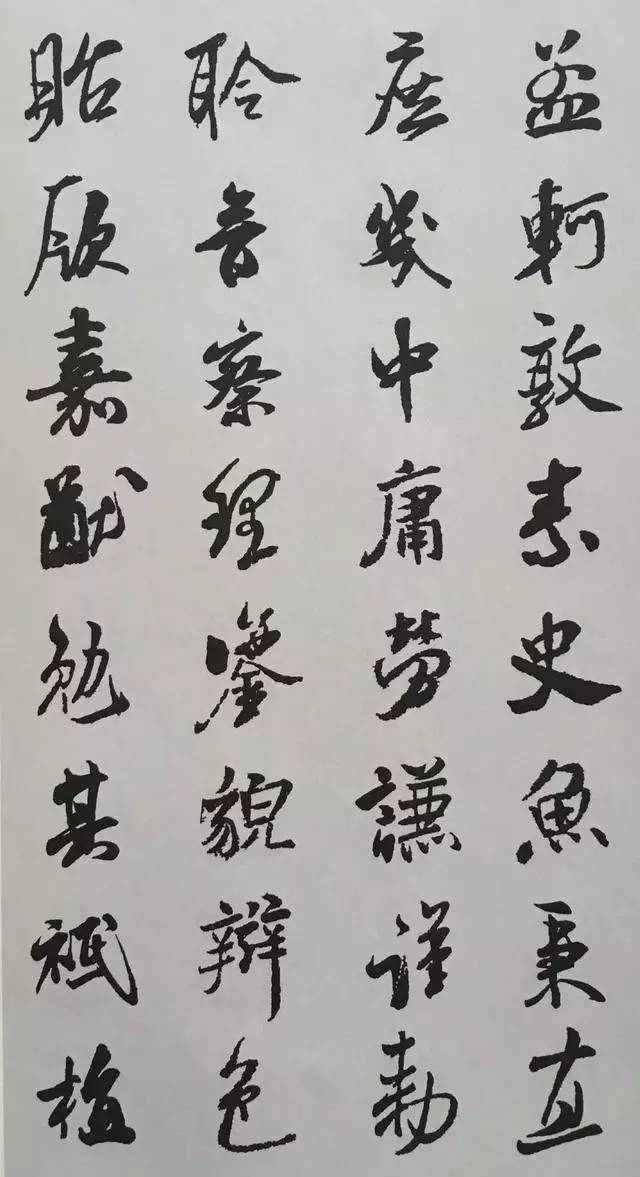 孟軻敦素史魚秉直
庶幾中庸勞謙謹勅
聆音察理鑒貌辯色
貽厥嘉猷勉其祗植